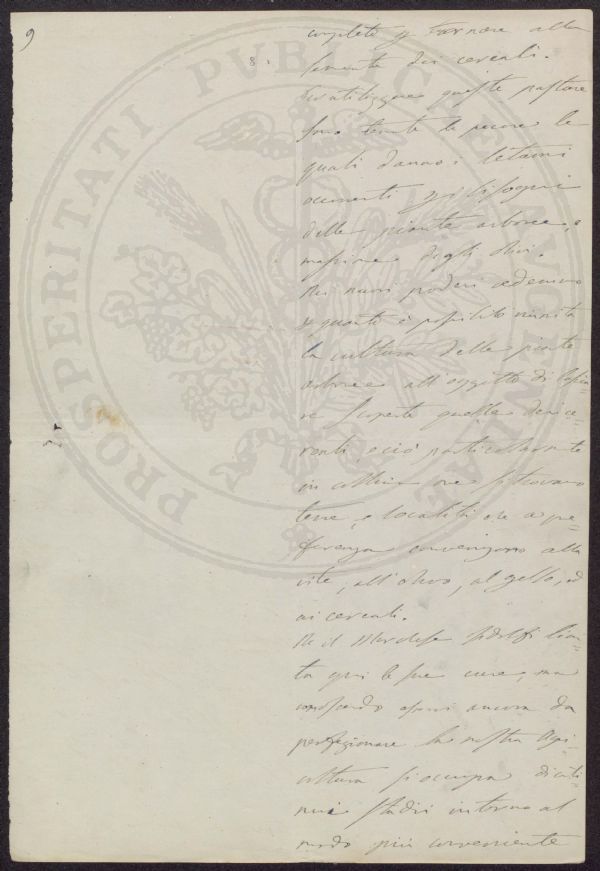 9
8.
completo p tornare alla
sementa dei cereali.
queste pasture
sono tenute le pecore le
quali danno i letami
occorrenti pi bisogni
delle piante arboree, e
massime degli olivi.
Nei nuovi poderi vedemmo
p quanto è possibile riunita
la cultura delle piante
arboree all'oggetto di lascia=
re scoperte quelle dei ce=
reali e ciò particolarmente
in collina ove si trovano
terre, e località ove a pre=
ferenza convengono alla
vite, all'olivo, al gelso, ed
ai cereali.
Nè il Marchese Ridolfi limi=
ta qui le sue cure, ma
conoscendo esservi ancora da
perfezionare la nostra Agri=
coltura si occupa di conti=
nui studii intorno al
modo più conveniente
PROSPERITATI PVBLICAE AVGENDAE